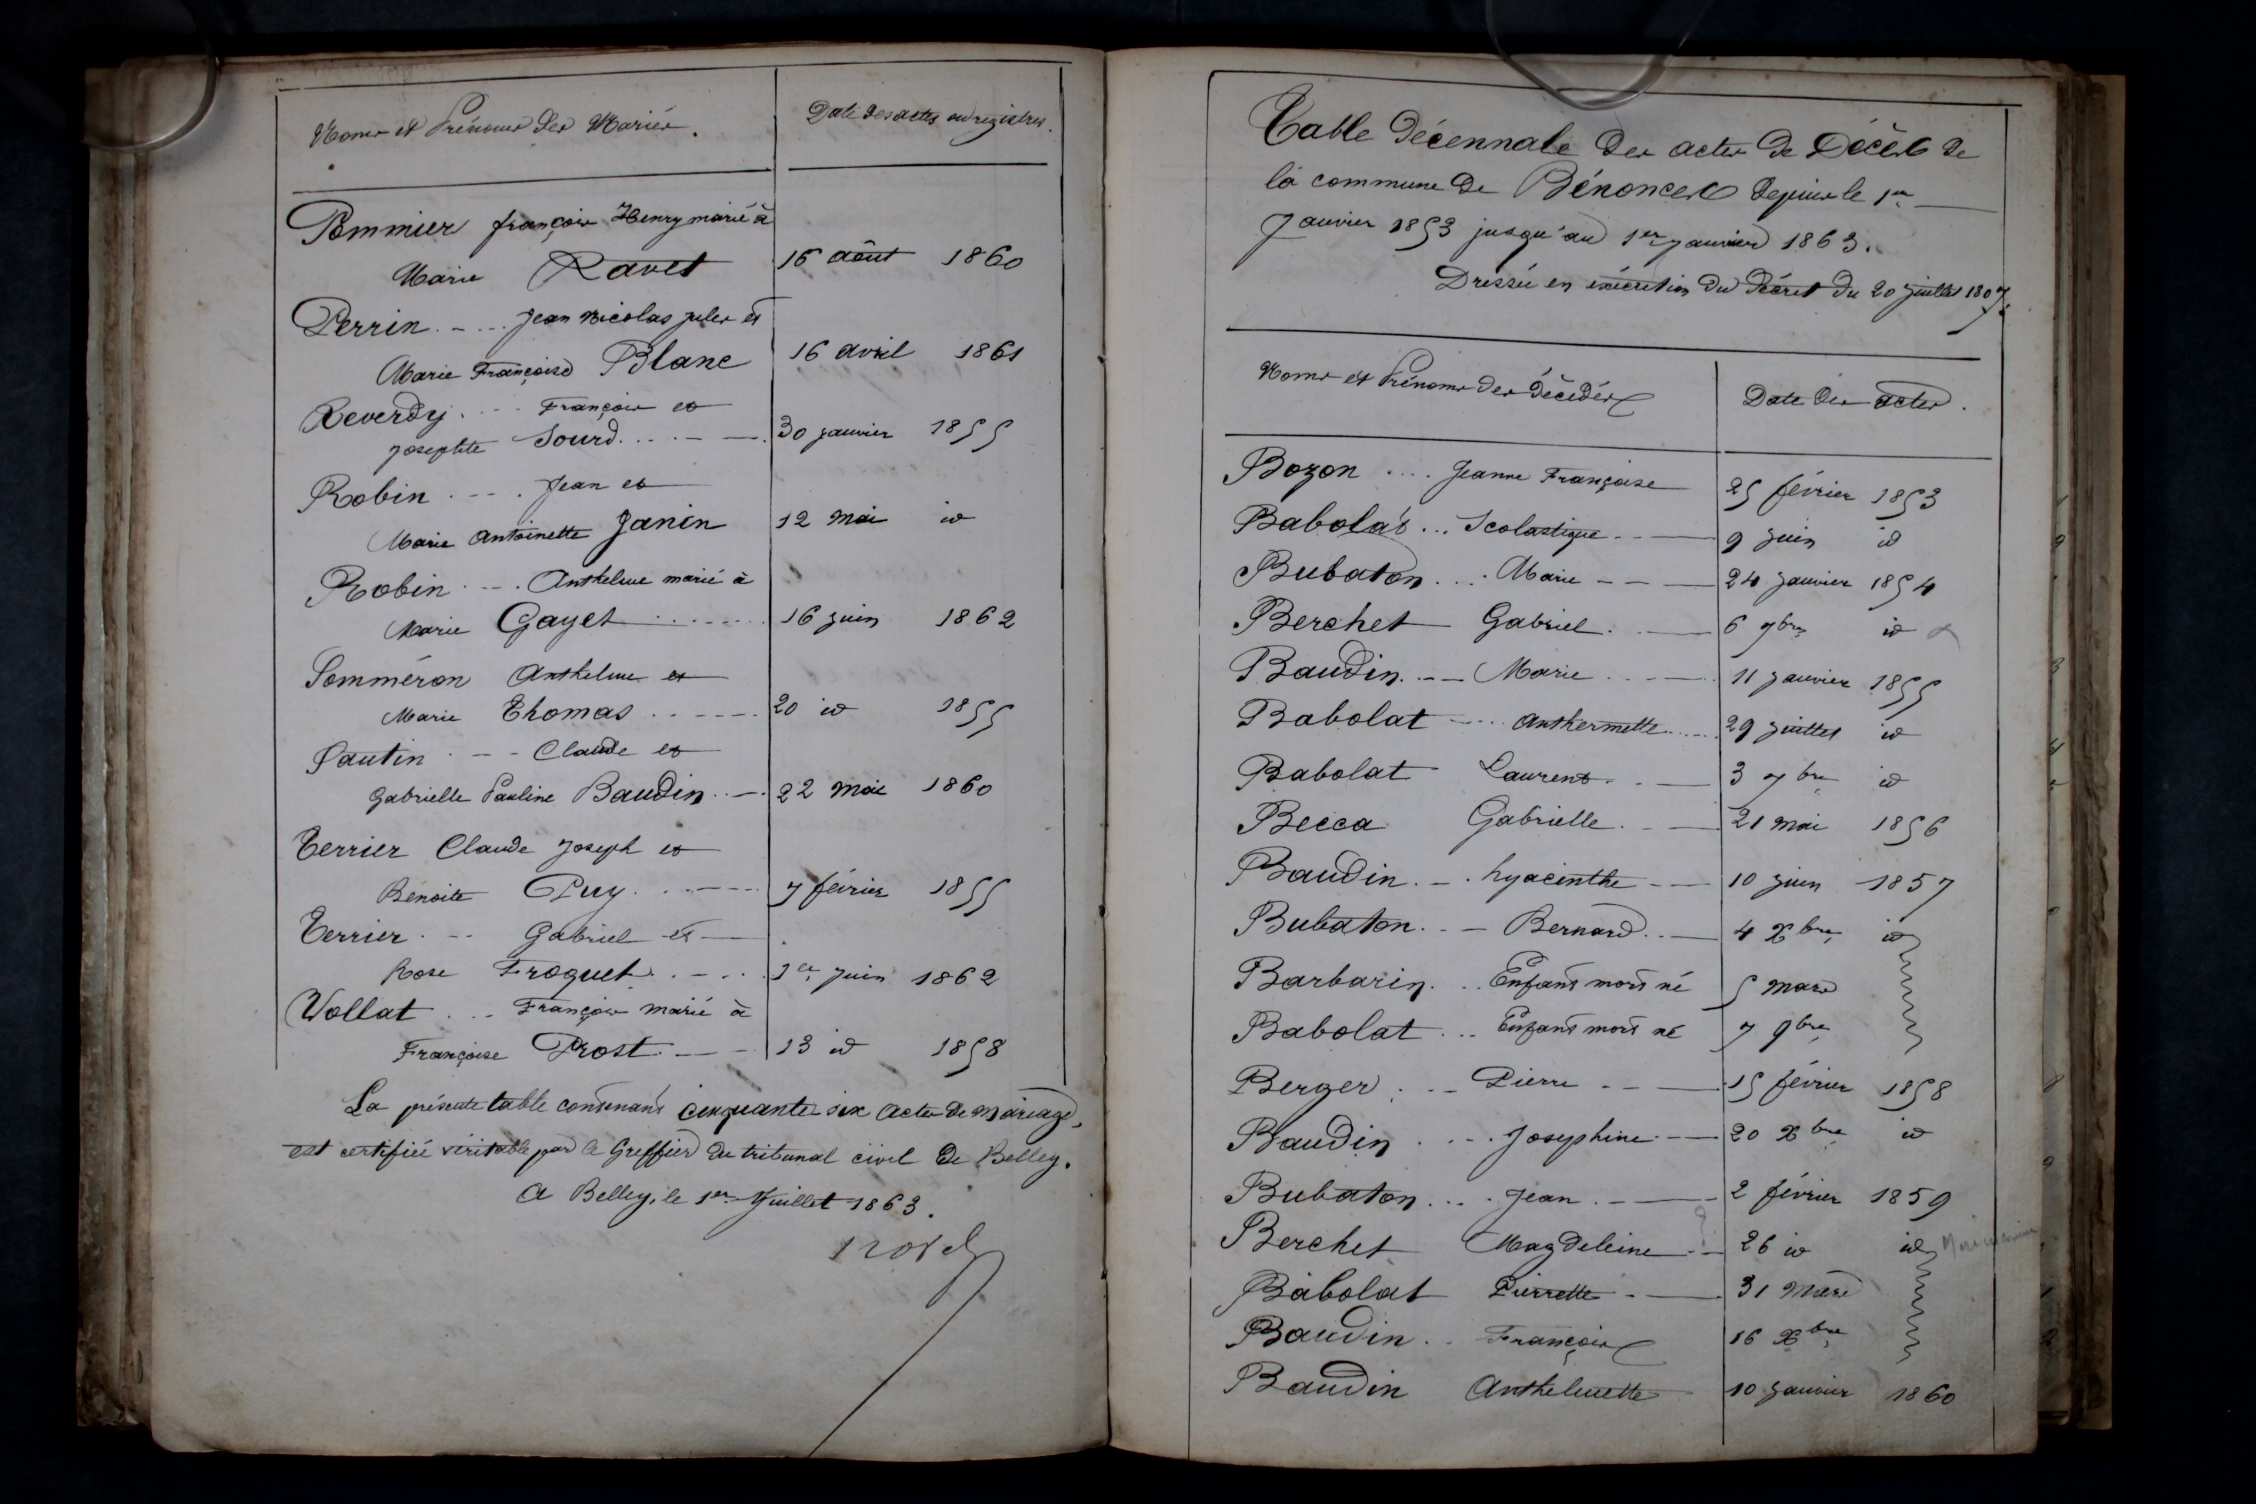 Noms et Prénoms des Mariés.
Date des actes au registres.
Pommier françois Henry marié à
Marie Ravet 16 août 1860
Perrin. - ... Jean Nicolas Jules et
Marie Françoise Blanc 16 avril 1861
Reverdy. ... François et
Josephte Sourd. ... - - 30 janvier 1855
Robin ... Jean et
Marie Antoinette Janin 12 mai id
Robin ... Anthelme marié à
Marie Gayet ....... 16 juin 1862
Somméron Anthelme et
Marie Thomas ...... 20 id 1855
Sautin - - Claude et
Gabrielle Pauline Baudin. - . 22 mai 1860
Terrier Claude Joseph et
Benoite Puy. ... 7 février 1855
Terrier. - - Gabriel et
Rose Froquet. . - . . 1er juin 1862
Vollat ... François marié à
Françoise Prost. - - 13 id 1858
La présente table contenant cinquante six actes de mariage,
est certifiée véritable par le Greffier du tribunal civil de Belley.
A Belley, le 1er Juillet 1863.
Table décennale des actes de Décès de
la commune de Bénonces depuis le 1er
Janvier 1853 jusqu'au 1er janvier 1863.
Dressée en exécution du décret du 20 juillet 1807.
Noms et Prénoms des décédés
Date des actes.
Bozon .... Jeanne Françoise 25 février 1853
Babolat ... Scolastique. - - 9 juin id
Bubaton. ... Marie - - - 24 janvier 1854
Berchet Gabriel. - 6 7bre id
Baudin. - - Marie ... 11 janvier 1855
Babolat ... Anthermette ..... 29 juillet id
Babolat Laurent. . - 3 7bre id
Becca Gabrielle. - - 21 mai 1856
Baudin. - . hyacinthe - - 10 juin 1857
Bubaton. - - Bernard. - 4 Xbre id
Barbarin. .. Enfant mort né 5 mars
Babolat ... Enfant mort né 7 9bre
Berger . - Pierre - - 15 février 1858
Baudin .... Josephine. - 20 Xbre id
Bubaton. ... Jean. - - 2 février 1859
Berchet Magdeleine - - 26 id id
Babolat Pierrette - - 31 Mars
Baudin . . François 16 Xbre
Baudin Anthelmette 10 janvier 1860